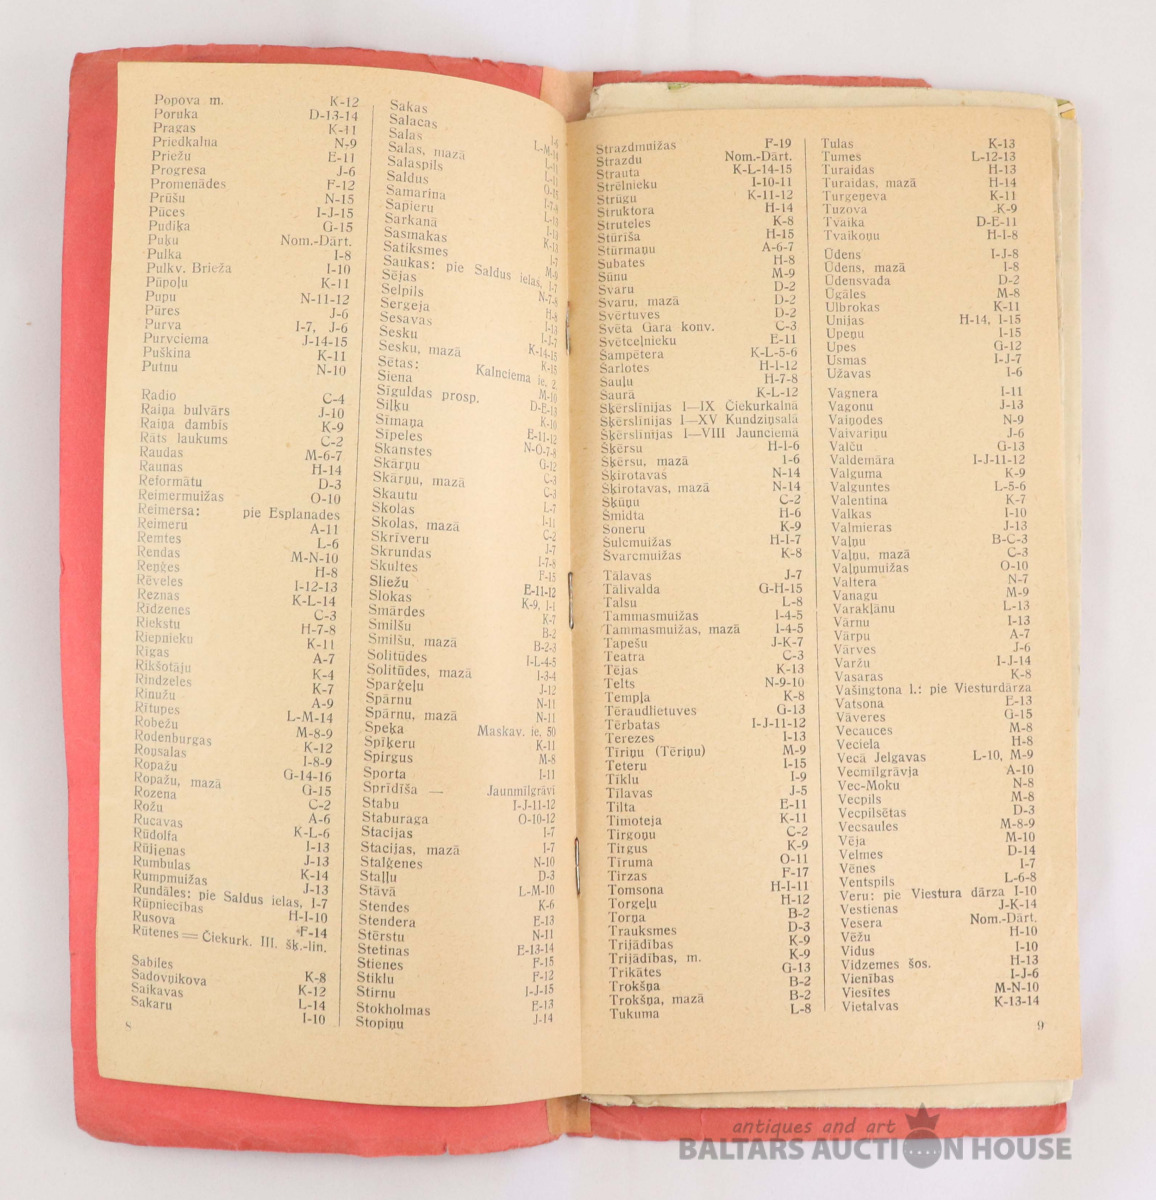 Popova m. K-12
Poruka D-13-14
Pragas K-11
Priedkalna N-9
Priežu E-11
Progresa J-6
Promenādes F-12
Prūšu N-15
Pūces I-J-15
Pudiķa G-15
Puķu Nom.-Dārt.
Puļka I-8
Pulkv. Brieža I-10
Pūpoļu K-11
Pupu N-11-12
Pūres J-6
Purva I-7, J-6
Purvciema J-14-15
Puškina K-11
Putnu N-10
Radio C-4
Raiņa bulvārs J-10
Raiņa dambis K-9
Rāts laukums C-2
Raudas M-6-7
Raunas H-14
Reformātu D-3
Reimermuižas O-10
Reimersa: pie Esplanades
Reimeru A-11
Remtes L-6
Rendas M-N-10
Reņģes H-8
Rēveles I-12-13
Reznas K-L-14
Rīdzenes C-3
Riekstu H-7-8
Riepnieku K-11
Rīgas A-7
Rikšotāju K-4
Rindzeles K-7
Rinužu A-9
Rītupes L-M-14
Robežu M-8-9
Rodenburgas K-12
Roņsalas I-8-9
Ropažu G-14-16
Ropažu, mazā G-15
Rozena C-2
Rožu A-6
Rucavas K-L-6
Rūdolfa I-13
Rūjienas J-13
Rumbulas K-14
Rumpmuižas J-13
Rundāles: pie Saldus ielas, I-7
Rūpniecības H-I-10
Rusova F-14
Rūtenes = Čiekurk. III. šķ.-lin.
Sabiles K-8
Sadovņikova K-12
Saikavas L-14
Sakaru I-10
8
Sakas I-6
Salacas L-M-14
Salas L-11
Salas, mazā L-11
Salaspils O-15
Saldus I-7-8
Samarina L-13
Sapieru I-10
Sarkanā K-13
Sasmakas I-7
Satiksmes M-9
Saukas: pie Saldus ielas, I-7
Sējas N-7-8
Sēlpils H-8
Sergeja I-13
Sesavas I-J-7
Sesku K-14-15
Sesku, mazā K-15
Sētas: Kalnciema ie. 2
Siena M-10
Siguldas prosp. D-E-13
Siļķu K-10
Sīmaņa E-11-12
Sīpeles N-O-7-8
Skanstes G-12
Skārņu C-3
Skārņu, mazā C-3
Skautu L-7
Skolas I-11
Skolas, mazā C-2
Skrīveru J-7
Skrundas I-7-8
Skultes F-15
Sliežu E-11-12
Slokas K-9, I-1
Smārdes K-7
Smilšu B-2
Smilšu, mazā B-2-3
Solitūdes I-L-4-5
Solitūdes, mazā I-3-4
Sparģeļu J-12
Spārnu N-11
Spārnu, mazā N-11
Speķa Maskav. ie. 50
Spīķeru K-11
Spirgus M-8
Sporta I-11
Sprīdīša — Jaunmilgrāvī
Stabu I-J-11-12
Staburaga O-10-12
Stacijas I-7
Stacijas, mazā I-7
Stalģenes N-10
Staļļu D-3
Stāvā L-M-10
Stendes K-6
Stendera E-13
Stērstu N-11
Stetinas E-13-14
Stienes F-15
Stiklu F-12
Stirnu I-J-15
Stokholmas E-13
Stopiņu J-14
Strazdmuižas F-19
Strazdu Nom.-Dārt.
Strauta K-L-14-15
Strēlnieku I-10-11
Strūgu K-11-12
Struktora H-14
Struteles K-8
Stūrīša H-15
Stūrmaņu A-6-7
Subates H-8
Sūnu M-9
Svaru D-2
Svaru, mazā D-2
Svērtuves D-2
Svēta Gara konv. C-3
Svētceļnieku E-11
Šampētera K-L-5-6
Šarlotes H-I-12
Šauļu H-7-8
Šaurā K-L-12
Šķērslīnijas I—IX Čiekurkalnā
Šķērslīnijas I—XV Kundziņsalā
Šķērslīnijas I—VIII Jaunciemā
Šķērsu H-I-6
Šķērsu, mazā I-6
Šķirotavas N-14
Šķirotavas, mazā N-14
Šķūņu C-2
Šmidta H-6
Šoneru K-9
Šulcmuižas H-I-7
Švarcmuižas K-8
Tālavas J-7
Tālivalda G-H-15
Talsu L-8
Tammasmuižas I-4-5
Tammasmuižas, mazā I-4-5
Tapešu J-K-7
Teatra C-3
Tējas K-13
Telts N-9-10
Tempļa K-8
Tēraudlietuves G-13
Tērbatas I-J-11-12
Terezes I-13
Tīriņu (Tēriņu) M-9
Teteru I-15
Tīklu I-9
Tilavas J-5
Tilta E-11
Timoteja K-11
Tirgoņu C-2
Tirgus K-9
Tīruma O-11
Tirzas F-17
Tomsona H-I-11
Torgeļu H-12
Torņa B-2
Trauksmes D-3
Trijādības K-9
Trijādības, m. K-9
Trikātes G-13
Trokšņa B-2
Trokšņa, mazā B-2
Tukuma L-8
Tulas K-13
Tumes L-12-13
Turaidas H-13
Turaidas, mazā H-14
Turgeņeva K-11
Tuzova K-9
Tvaika D-E-11
Tvaikoņu H-I-8
Ūdens I-J-8
Ūdens, mazā I-8
Ūdensvada D-2
Ugāles M-8
Ulbrokas K-11
Ūnijas H-14, I-15
Upeņu I-15
Upes G-12
Usmas I-J-7
Užavas I-6
Vagnera I-11
Vagonu J-13
Vaiņodes N-9
Vaivariņu J-6
Valču G-13
Valdemāra I-J-11-12
Valguma K-9
Valguntes L-5-6
Valentina K-7
Valkas I-10
Valmieras J-13
Vaļņu B-C-3
Vaļņu, mazā C-3
Vaļņumuižas O-10
Valtera N-7
Vanagu M-9
Varakļānu L-13
Vārnu I-13
Vārpu A-7
Vārves J-6
Varžu I-J-14
Vasaras K-8
Vašingtona l.: pie Viesturdārza
Vatsona E-13
Vāveres G-15
Vecauces M-8
Veciela H-8
Vecā Jelgavas L-10, M-9
Vecmīlgrāvja A-10
Vec-Moku N-8
Vecpils M-8
Vecpilsētas D-3
Vecsaules M-8-9
Vēja M-10
Velmes D-14
Vēnes I-7
Ventspils L-6-8
Veru: pie Viestura dārza I-10
Vestienas J-K-14
Vesera Nom.-Dārt.
Vēžu H-10
Vidus I-10
Vidzemes šos. H-13
Vienības I-J-6
Viesītes M-N-10
Vietalvas K-13-14
9
antiques and art
BALTARS AUCTION HOUSE